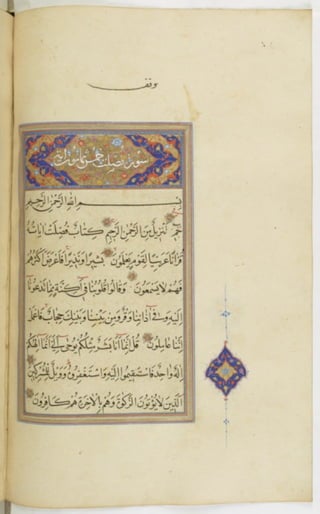 وقف
سورة فصلت خمس
بسم الله الرحمن الرحيم
حم تنزيل من الرحمن الرحيم كتاب فصلت اياته
قرانا عربيا لقوم يعلمون بشيرا ونذيرا فاعرض اكثرهم
فهم لا يسمعون وقالوا قلوبنا في اكنة مما تدعونا
اليه وفي آذاننا وقر ومن بيننا وبينك حجاب فاعمل
اننا عاملون قل انما انا بشر مثلكم يوحى الي انما الهكم
اله واحد فاستقيموا اليه واستغفروه وويل للمشركين
الذين لا يؤتون الزكوة وهم بالاخرة هم كافرون